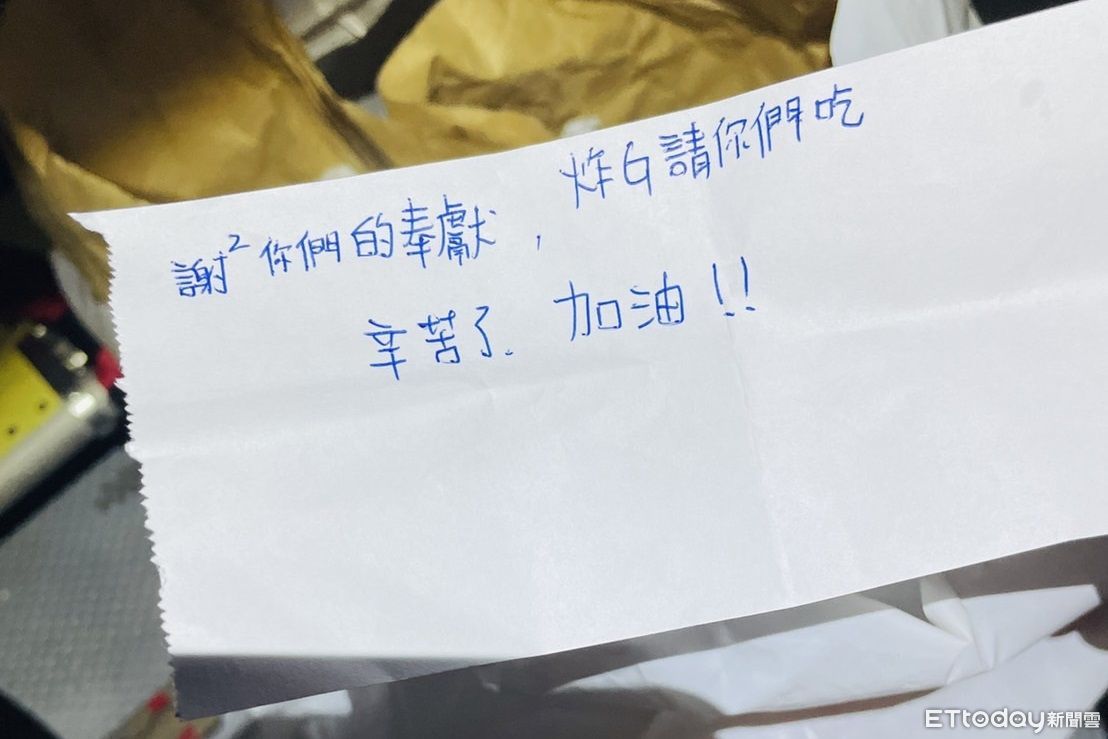 謝²你們的奉獻，炸G請你們吃
辛苦了. 加油!!
ETtoday新聞雲